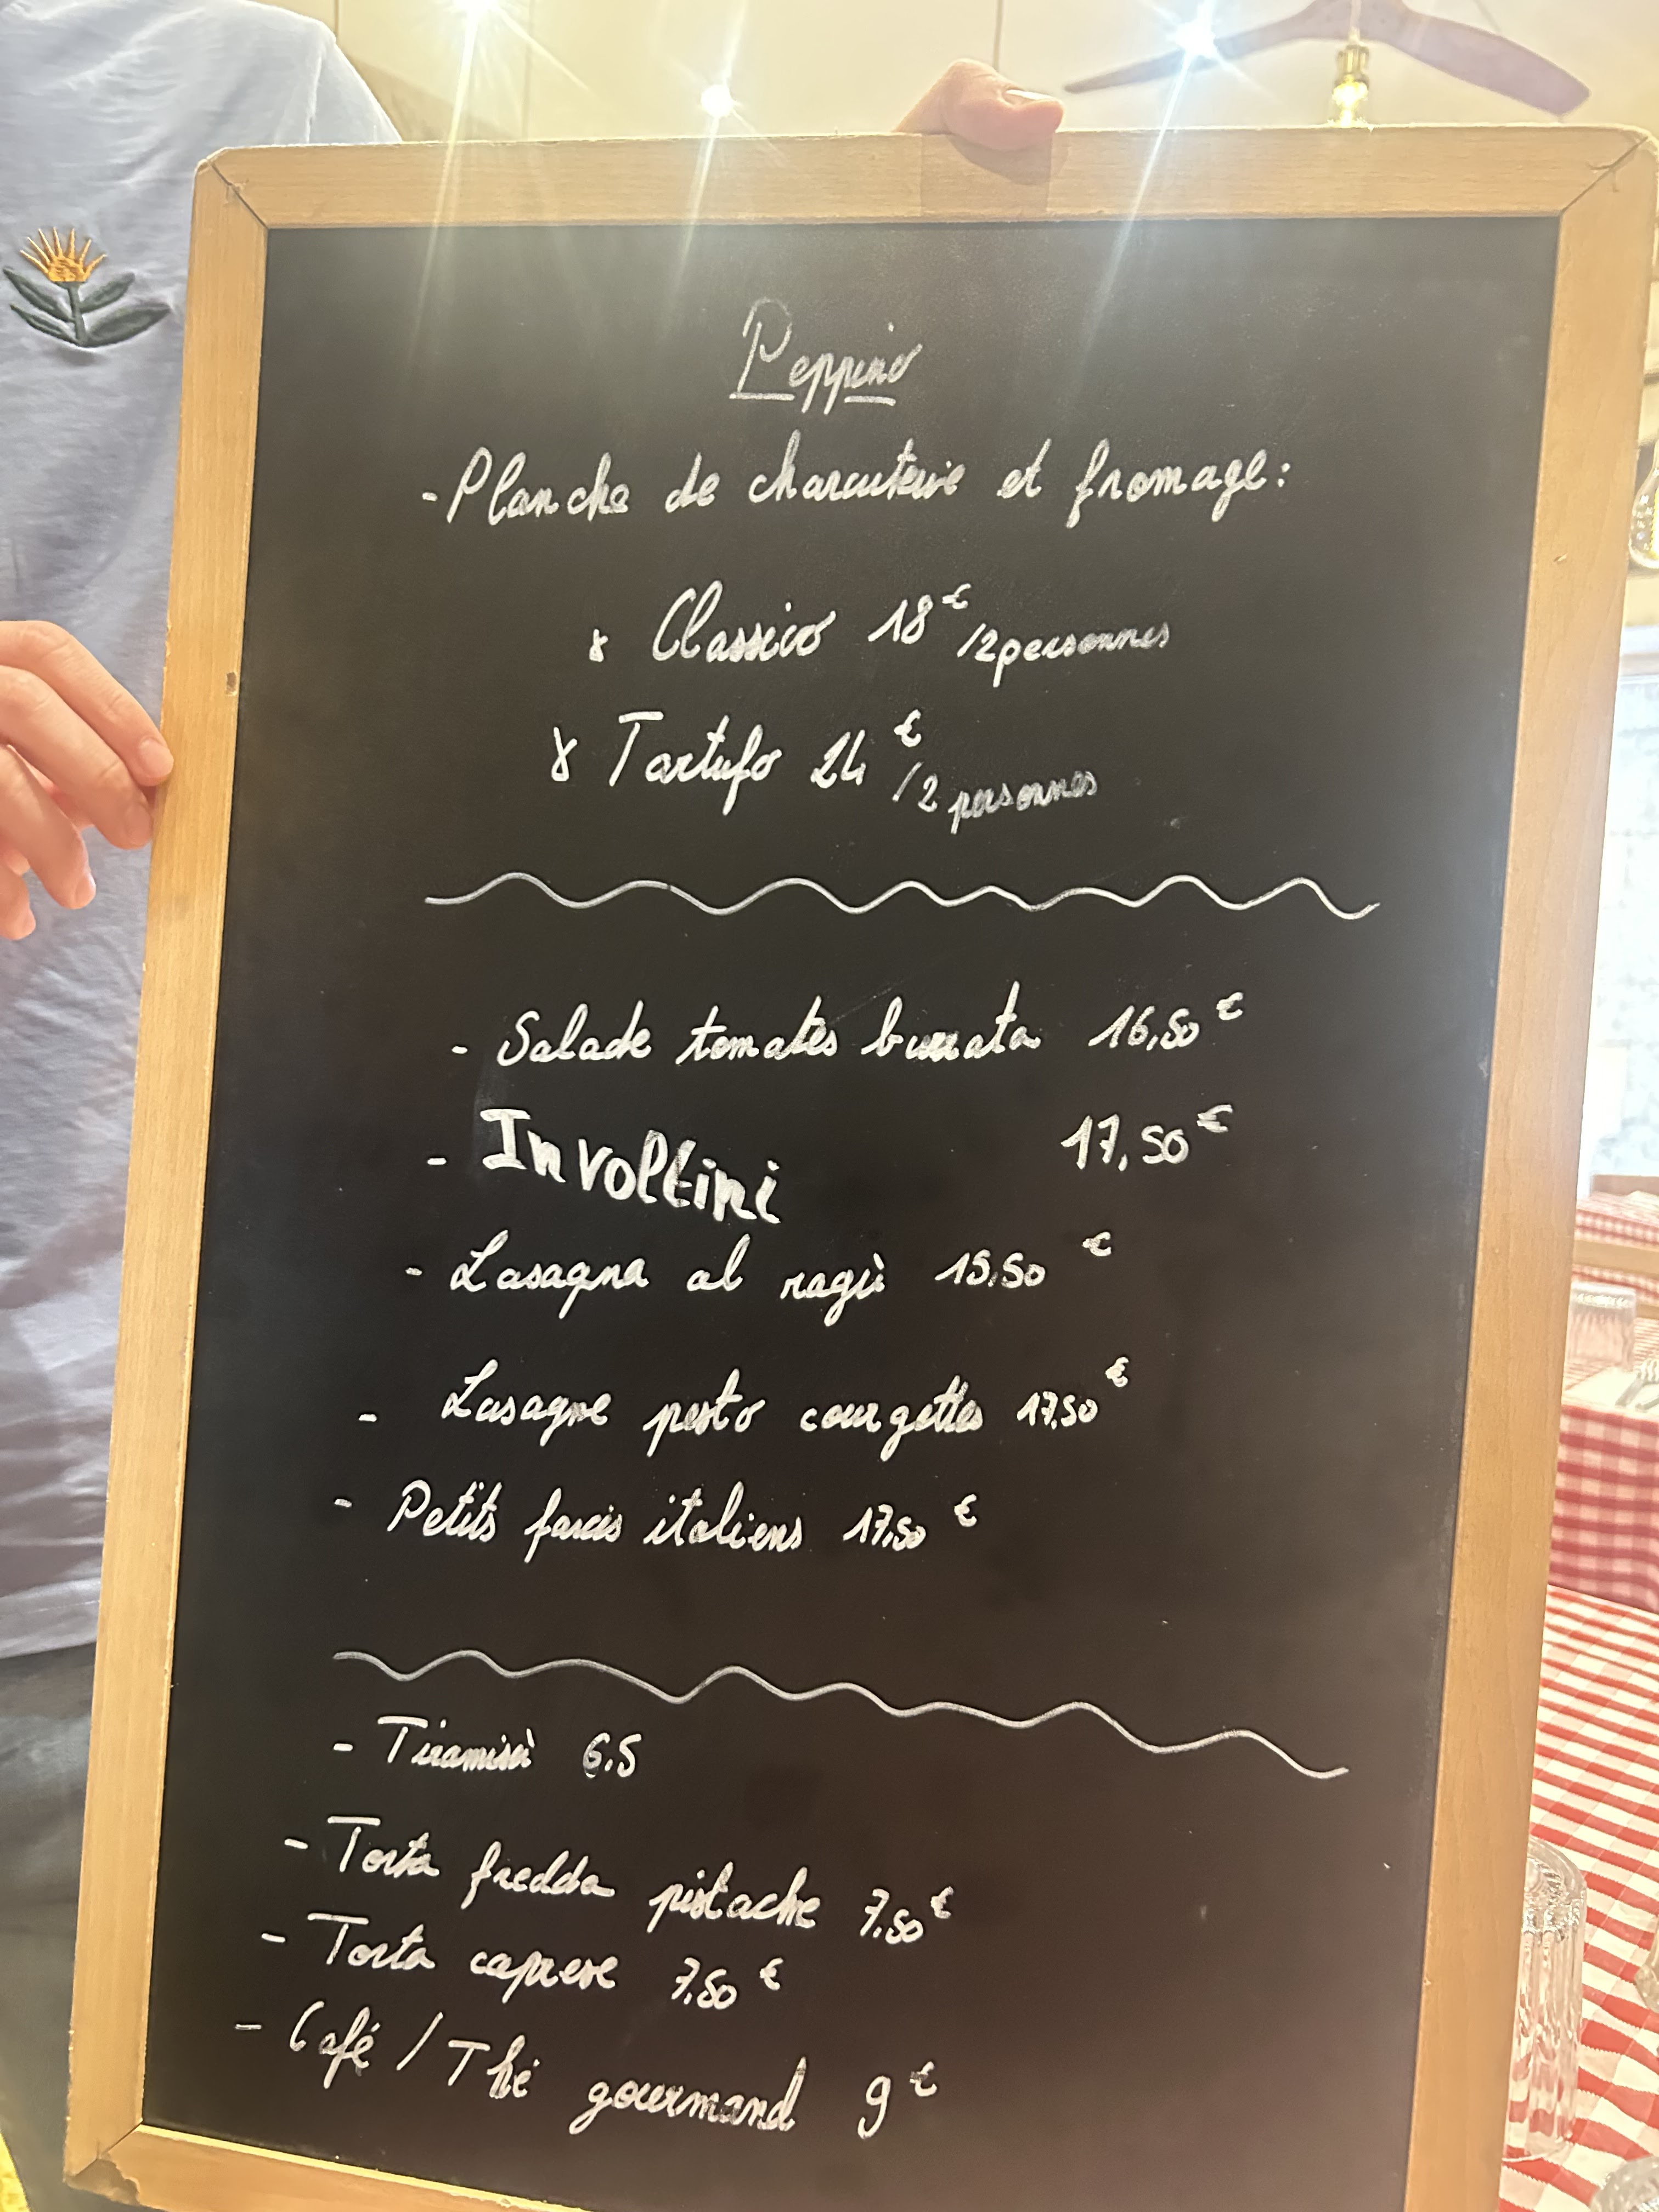 Peppino
- Planche de charcuterie et fromage :
x Classico 18€ /2 personnes
x Tartufo 24€ /2 personnes
- Salade tomates burrata 16,50€
- Involtini 17,50€
- Lasagna al ragù 15,50€
- Lasagne pesto courgettes 17,50€
- Petits farcis italiens 17,50€
- Tiramisù 6,5
- Torta fredda pistache 7,50€
- Torta caprese 7,50€
- Café / Thé gourmand 9€